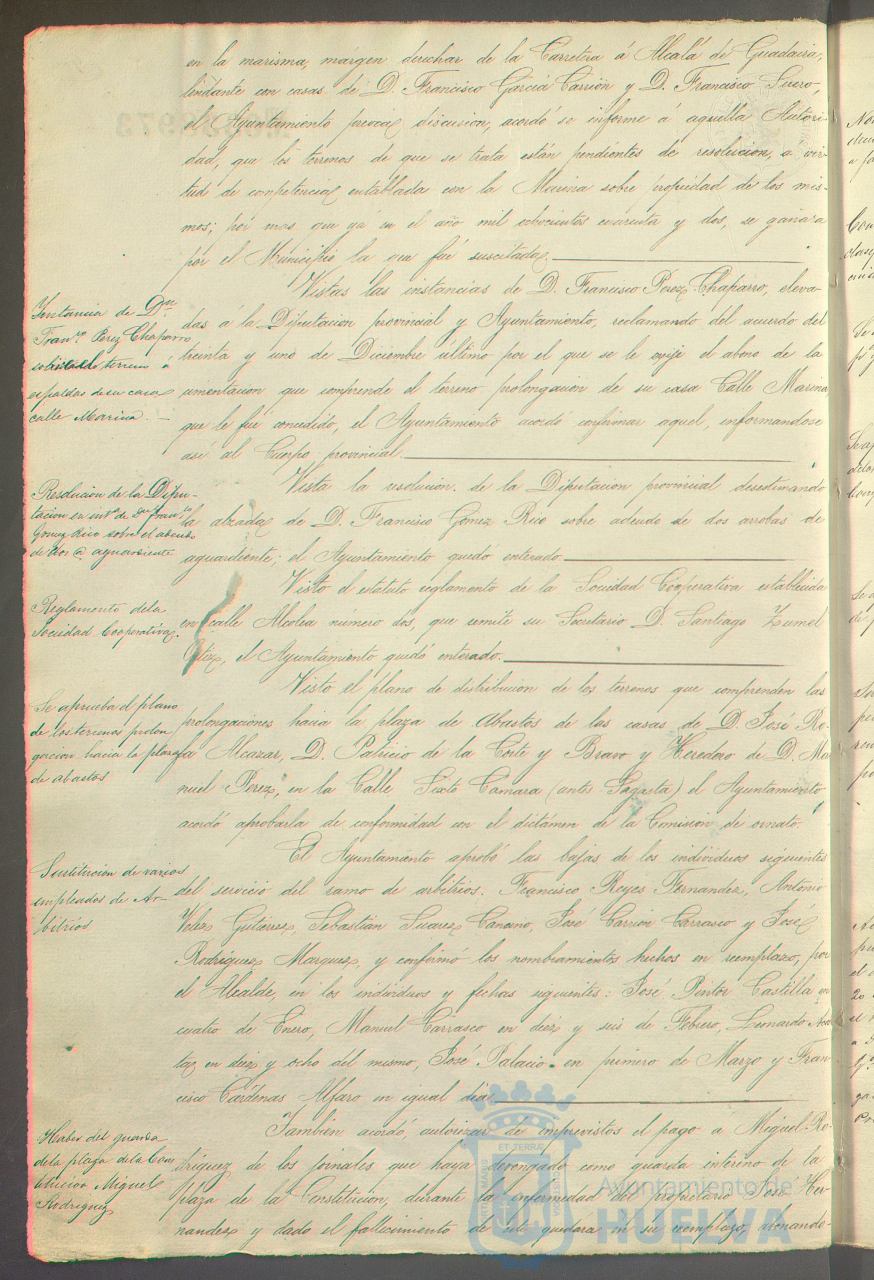 en la marisma, márgen derechar de la Carretera á Alcalá de Guadaira,
lindante con casas de D. Francisco García Carrión y D. Francisco Suero,
el Ayuntamiento previa discusion, acordó se informe á aquella Autori-
dad, que los terrenos de que se trata están pendientes de resolucion, a vir-
tud de competencia entablada con la Marina sobre propiedad de los mis-
mos; por mas que ya en el año mil ochocientos cuarenta y dos, se ganara
por el Municipio la que fué suscitada.
Instancia de Dn
Franco Perez Chaparro
terreno á
espaldas de su casa
calle Marina.
Vistas las instancias de D. Francisco Pérez Chaparro, eleva-
das á la Diputacion provincial y Ayuntamiento, reclamando del acuerdo del
treinta y uno de Diciembre último por el que se le exije el abono de la
umentacion que comprende el terreno prolongacion de su casa Calle Marina,
que le fué concedido, el Ayuntamiento acordó confirmar aquel, informandose
asi al Cuerpo provincial
Resolucion de la Dipu-
tacion en inta de Dn Franco
Gomez Rico sobre el abono
de dos @ aguardiente
Vista la resolucion de la Diputacion provincial desestimando
la alzada de D. Francisco Gómez Rico sobre adeudo de dos arrobas de
aguardiente; el Ayuntamiento quedó enterado
Reglamento de la
Sociedad Cooperativa.
Visto el estatuto reglamento de la Sociedad Cooperativa establecida
en calle Alcolea número dos, que remite su Secretario D. Santiago Zumel
Ortiz, el Ayuntamiento quedó enterado.
Se aprueba el plano
de los terrenos prolon
gacion hacia la plaza
de abastos
Visto el plano de distribucion de los terrenos que comprenden las
prolongaciones hacia la plaza de Abastos de las casas de D. José Ro-
fa Alcazar, D. Patricio de la Corte y Bravo y Heredero de D. Ma-
nuel Perez, en la Calle Sixto Cámara (antes Sagasta) el Ayuntamiento
acordó aprobarla de conformidad con el dictámen de la Comision de ornato.
Sustitucion de varios
empleados de Ar-
bitrios
El Ayuntamiento aprobó las bajas de los individuos siguientes
del servicio del ramo de arbitrios. Francisco Reyes Fernandez, Antonio
Velez Gutiérrez, Sebastian Suarez Canano, José Carrion Carrasco y José
Rodriguez Marquez, y confirmó los nombramientos hechos en reemplazo, por
el Alcalde, en los individuos y fechas siguientes: José Pintor Castilla en
cuatro de Enero, Manuel Carrasco en diez y seis de Febrero, Leonardo
en diez y ocho del mismo, José Palacio en primero de Marzo y Fran-
cisco Cárdenas Alfaro en igual dia.
Haber del guarda
de la plaza de la Cons
titucion Miguel
Rodriguez
Tambien acordó, autorizar de imprevistos el pago a Miguel Ro-
driguez de los jornales que haya devengado como guarda interino de la
plaza de la Constitucion, durante la enfermedad del propietario José Her-
nandez y dado el fallecimiento de este quedara en su reemplazo, abonando-
Ayuntamiento de
HUELVA